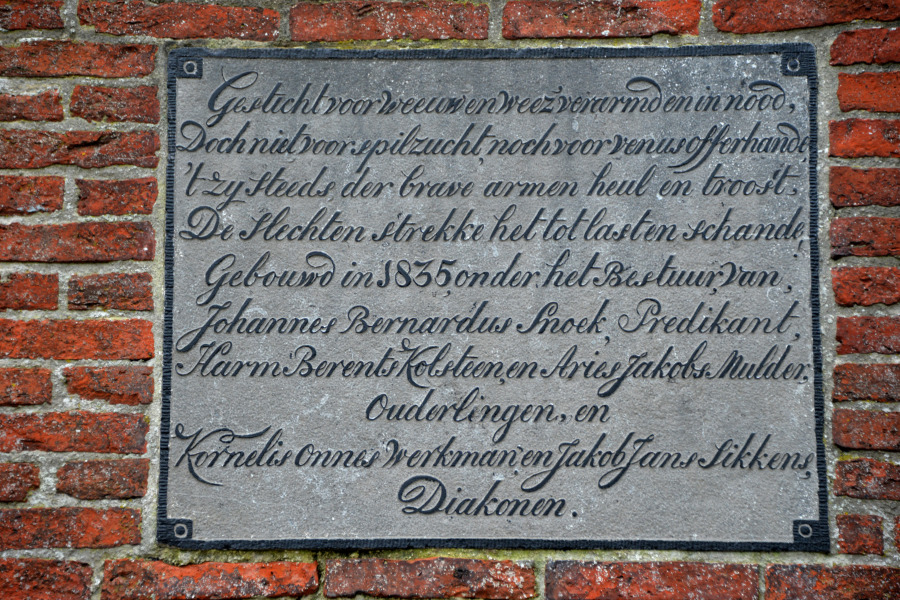 Gesticht voor weeuw en weez' verarmd en in nood,
Doch niet voor spilzucht, noch voor venus offerhande,
't zy steeds der brave armen heul en troost.
De slechten strekke het tot last en schande,
Gebouwd in 1835, onder het Bestuur, van,
Johannes Bernardus Snoek, Predikant,
Harm Berents Kolsteen, en Aries Jakobs Mulder,
Ouderlingen, en
Kornelis Onnes Werkman, en Jakob Jans Sikkens,
Diakonen.